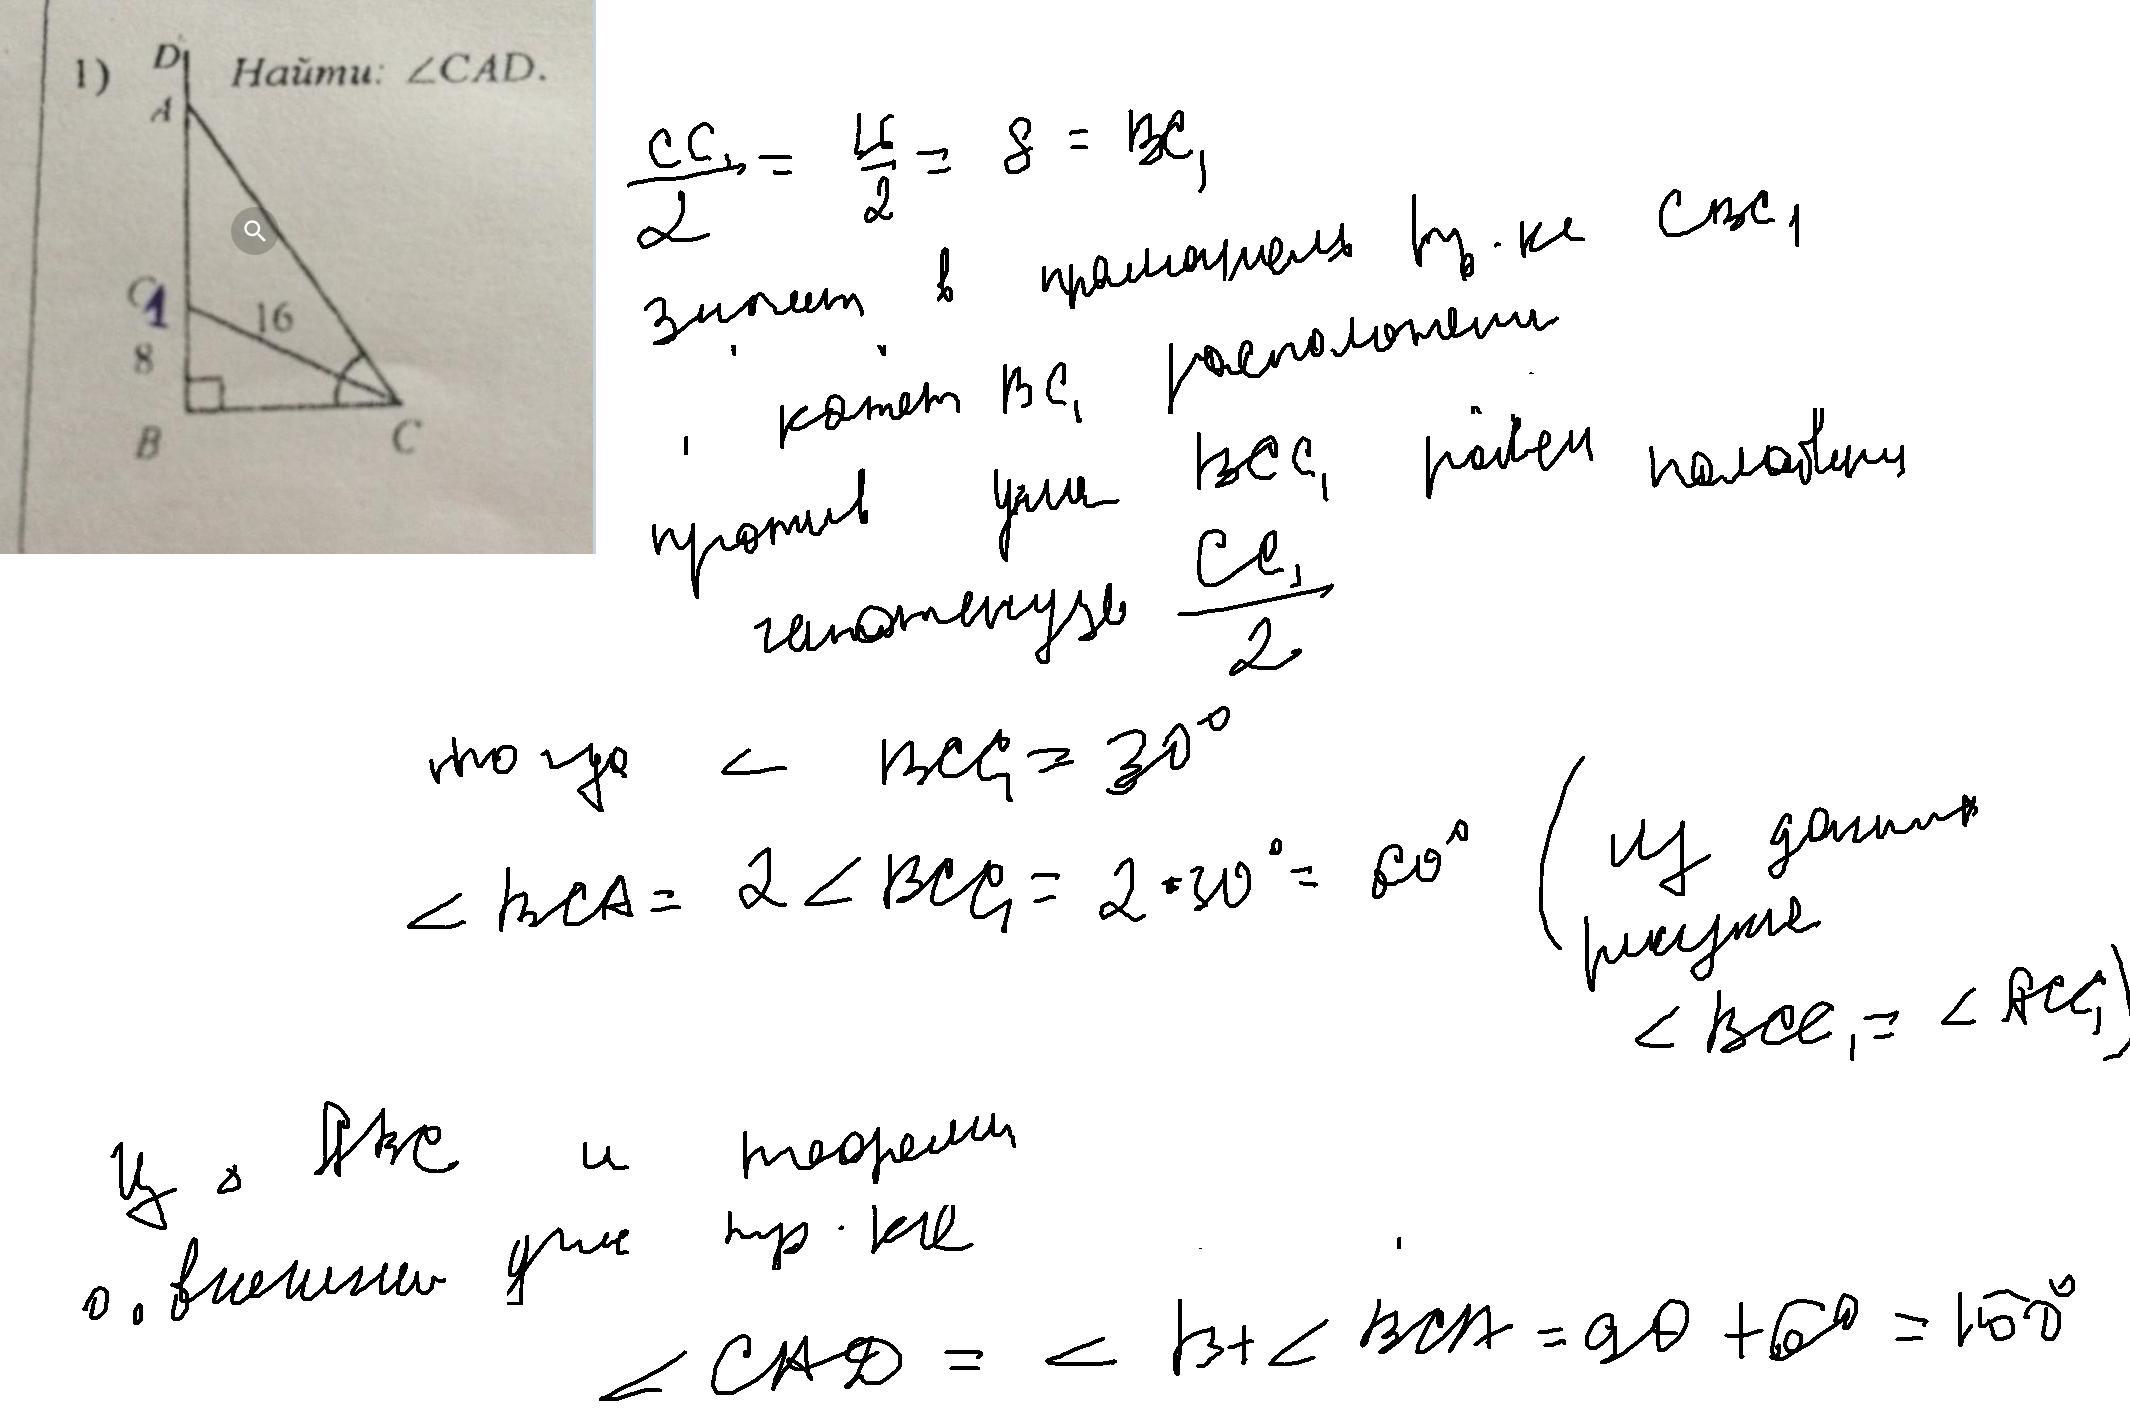 1) D Найти: ∠CAD.
A
C1
16
8
B C
CC₁/2 = 16/2 = 8 = BC₁
Значит в прямоугольн тр-ке CBC₁
катет BC₁ расположени
против угла BCC₁ равен половини
гипотенузе CC₁/2
тогда < BCC₁ = 30°
< BCA = 2 < BCC₁ = 2 · 30° = 60° (из данних
рисунке
< BCC₁ = < ACC₁)
Из △ ABC и теореми
о внешнем угле тр-ке
< CAD = < B + < BCA = 90 + 60 = 150°